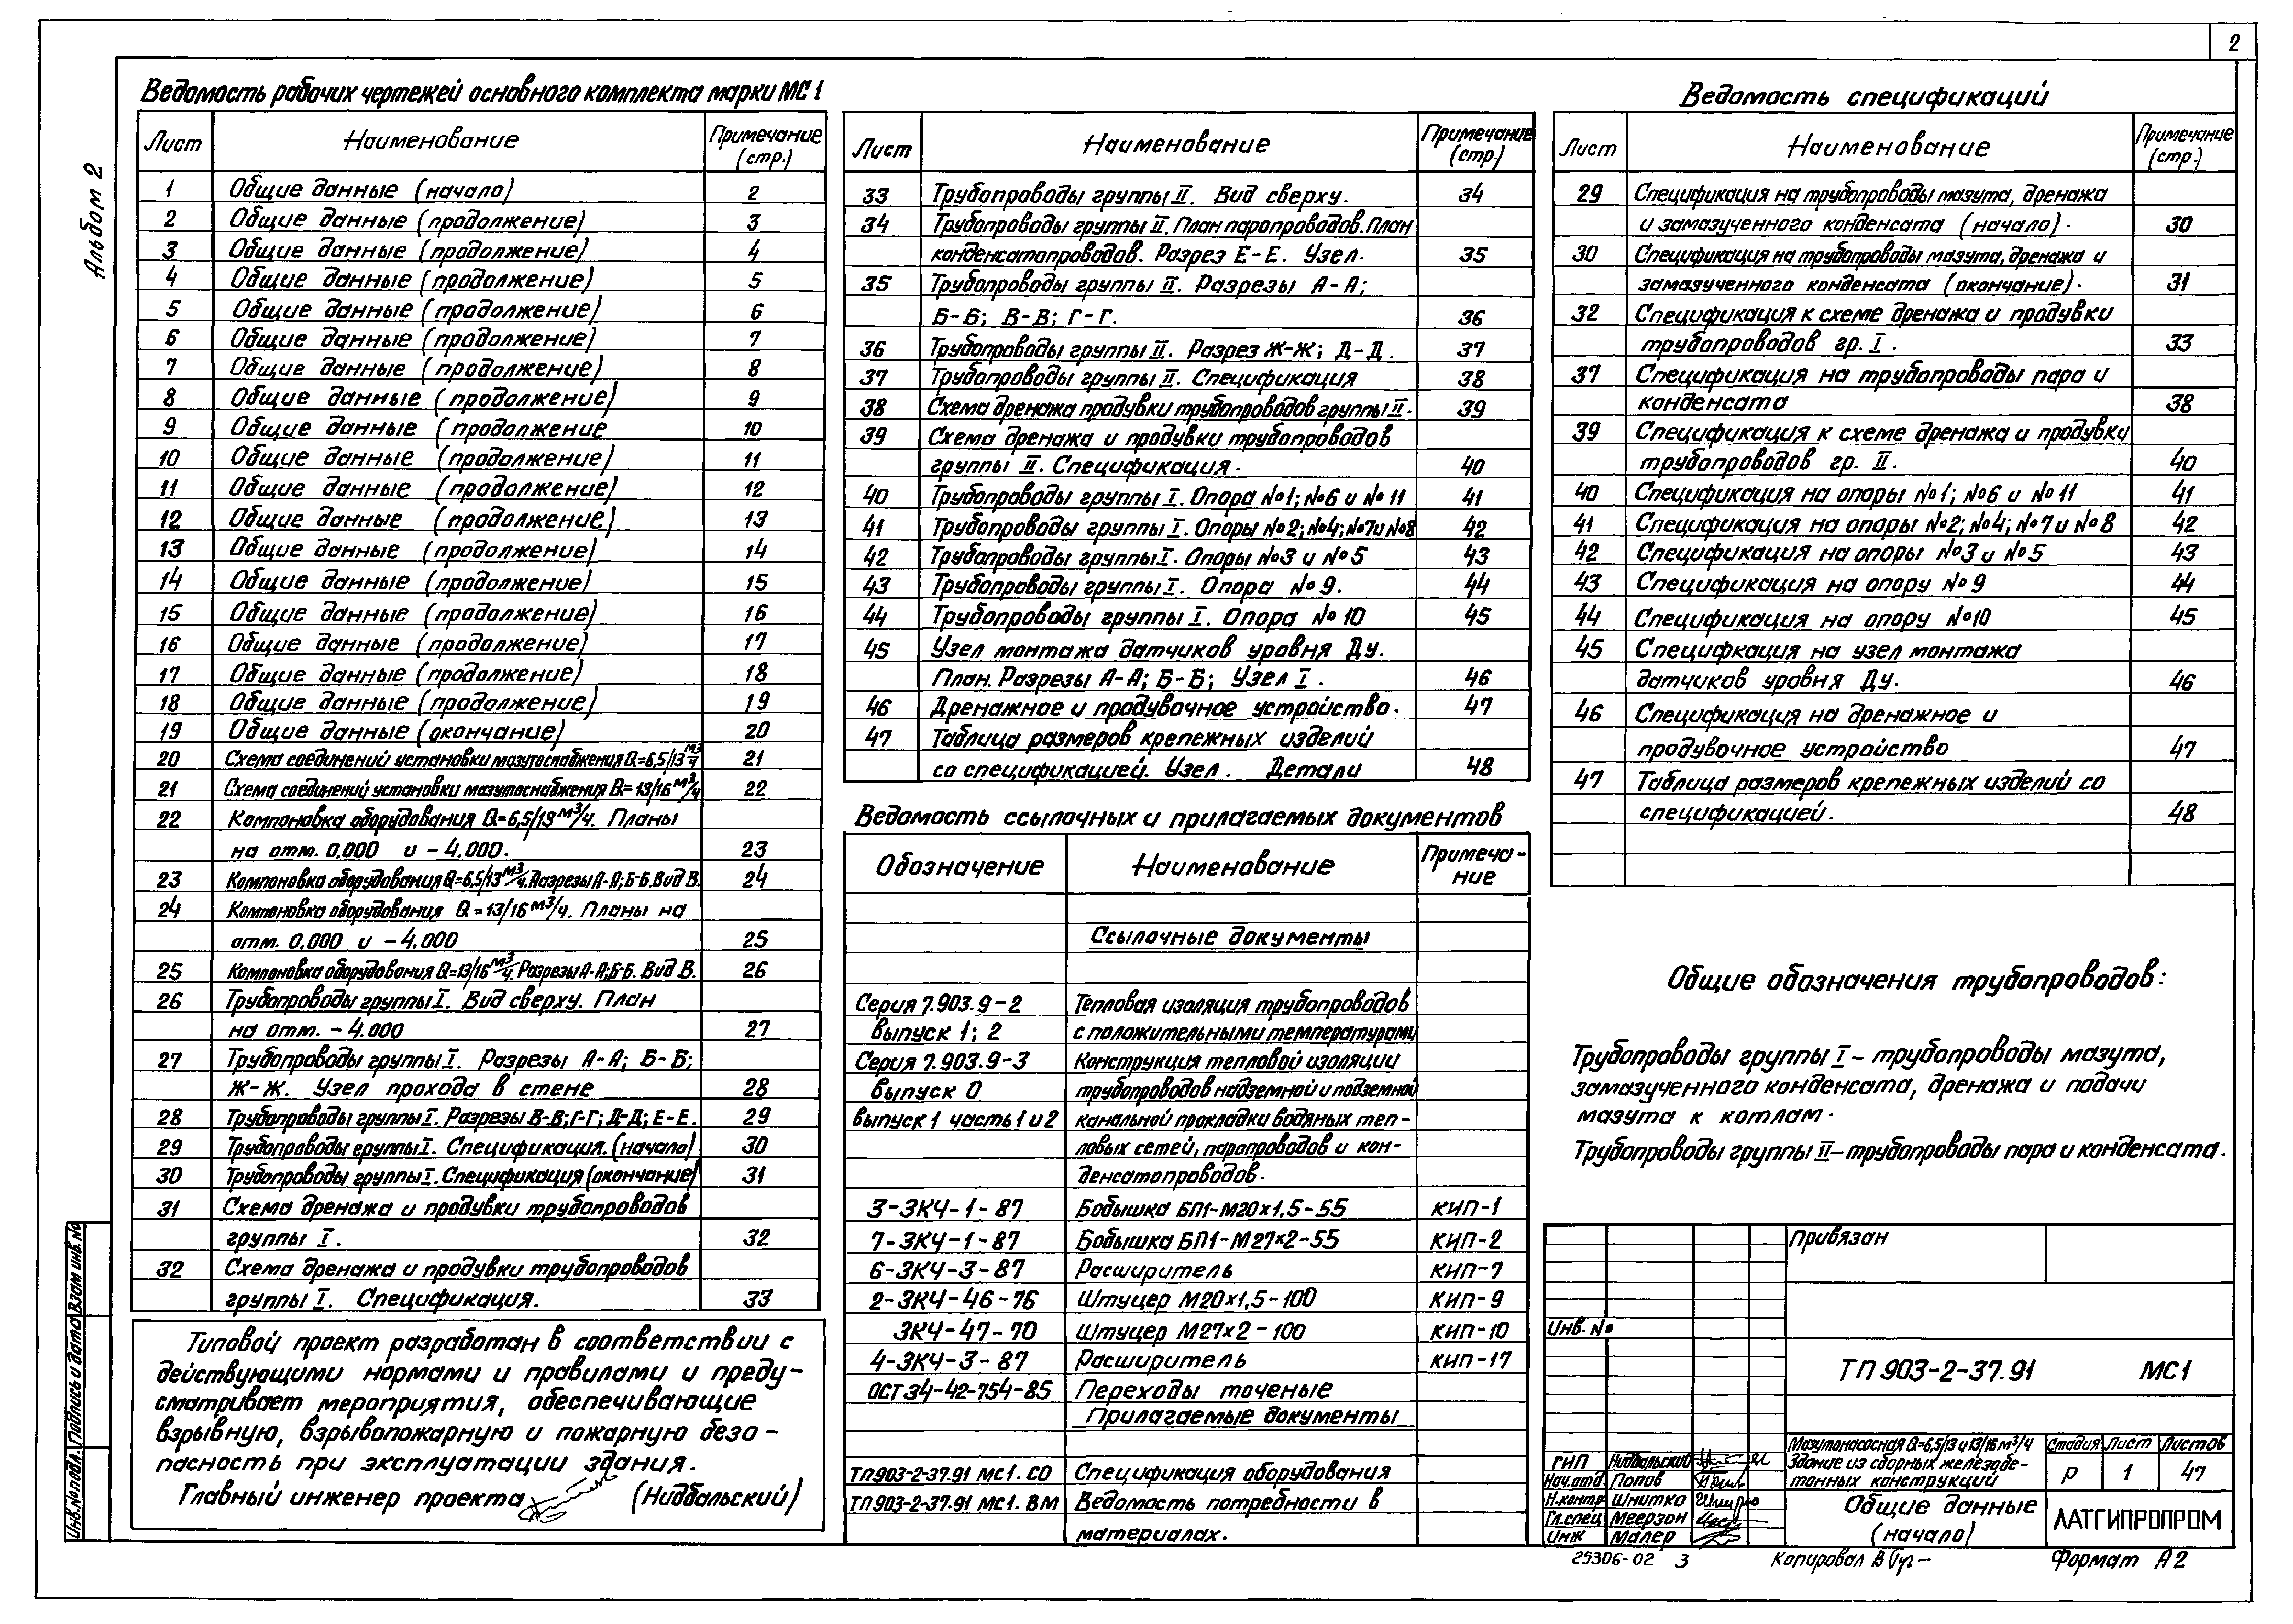 2
Альбом 2
Ведомость рабочих чертежей основного комплекта марки МС 1
Лист Наименование Примечание (стр.)
1 Общие данные (начало) 2
2 Общие данные (продолжение) 3
3 Общие данные (продолжение) 4
4 Общие данные (продолжение) 5
5 Общие данные (продолжение) 6
6 Общие данные (продолжение) 7
7 Общие данные (продолжение) 8
8 Общие данные (продолжение) 9
9 Общие данные (продолжение 10
10 Общие данные (продолжение) 11
11 Общие данные (продолжение) 12
12 Общие данные (продолжение) 13
13 Общие данные (продолжение) 14
14 Общие данные (продолжение) 15
15 Общие данные (продолжение) 16
16 Общие данные (продолжение) 17
17 Общие данные (продолжение) 18
18 Общие данные (продолжение) 19
19 Общие данные (окончание) 20
20 Схема соединений установки мазутоснабжения Q=6,5/13 м³/ч 21
21 Схема соединений установки мазутоснабжения Q=13/16 м³/ч 22
22 Компоновка оборудования Q=6,5/13 м³/ч. Планы
на отм. 0,000 и -4.000. 23
23 Компоновка оборудования Q=6,5/13 м³/ч. Разрезы А-А; Б-Б. Вид В. 24
24 Компоновка оборудования Q=13/16 м³/ч. Планы на
отм. 0,000 и -4,000 25
25 Компоновка оборудования Q=13/16 м³/ч. Разрезы А-А; Б-Б. Вид В. 26
26 Трубопроводы группы I. Вид сверху. План
на отм. -4.000 27
27 Трубопроводы группы I. Разрезы А-А; Б-Б;
Ж-Ж. Узел прохода в стене 28
28 Трубопроводы группы I. Разрезы В-В; Г-Г; Д-Д; Е-Е. 29
29 Трубопроводы группы I. Спецификация. (начало) 30
30 Трубопроводы группы I. Спецификация (окончание) 31
31 Схема дренажа и продувки трубопроводов
группы I. 32
32 Схема дренажа и продувки трубопроводов
группы I. Спецификация. 33
Типовой проект разработан в соответствии с
действующими нормами и правилами и преду-
сматривает мероприятия, обеспечивающие
взрывную, взрывопожарную и пожарную безо-
пасность при эксплуатации здания.
Главный инженер проекта (Нидбальский)
Лист Наименование Примечание (стр.)
33 Трубопроводы группы II. Вид сверху. 34
34 Трубопроводы группы II. План паропроводов. План
конденсатопроводов. Разрез Е-Е. Узел. 35
35 Трубопроводы группы II. Разрезы А-А;
Б-Б; В-В; Г-Г. 36
36 Трубопроводы группы II. Разрез Ж-Ж; Д-Д. 37
37 Трубопроводы группы II. Спецификация 38
38 Схема дренажа продувки трубопроводов группы II. 39
39 Схема дренажа и продувки трубопроводов
группы II. Спецификация. 40
40 Трубопроводы группы I. Опора №1; №6 и №11 41
41 Трубопроводы группы I. Опоры №2; №4; №7 и №8 42
42 Трубопроводы группы I. Опоры №3 и №5 43
43 Трубопроводы группы I. Опора №9. 44
44 Трубопроводы группы I. Опора №10 45
45 Узел монтажа датчиков уровня Ду.
План. Разрезы А-А; Б-Б; Узел I. 46
46 Дренажное и продувочное устройство. 47
47 Таблица размеров крепежных изделий
со спецификацией. Узел. Детали 48
Ведомость ссылочных и прилагаемых документов
Обозначение Наименование Примеча-ние
Ссылочные документы
Серия 7.903.9-2 Тепловая изоляция трубопроводов
выпуск 1; 2 с положительными температурами
Серия 7.903.9-3 Конструкция тепловой изоляции
выпуск 0 трубопроводов надземной и подземной
выпуск 1 часть 1 и 2 канальной прокладки водяных теп-
ловых сетей, паропроводов и кон-
денсатопроводов.
3-ЗКЧ-1-87 Бобышка БП1-М20×1,5-55 КИП-1
7-ЗКЧ-1-87 Бобышка БП1-М27×2-55 КИП-2
6-ЗКЧ-3-87 Расширитель КИП-7
2-ЗКЧ-46-76 Штуцер М20×1,5-100 КИП-9
ЗКЧ-47-70 Штуцер М27×2-100 КИП-10
4-ЗКЧ-3-87 Расширитель КИП-17
ОСТ 34-42-754-85 Переходы точеные
Прилагаемые документы
ТП 903-2-37.91 МС1. СО Спецификация оборудования
ТП 903-2-37.91 МС1. ВМ Ведомость потребности в
материалах.
Ведомость спецификаций
Лист Наименование Примечание (стр.)
29 Спецификация на трубопроводы мазута, дренажа
и замазученного конденсата (начало). 30
30 Спецификация на трубопроводы мазута, дренажа и
замазученного конденсата (окончание). 31
32 Спецификация к схеме дренажа и продувки
трубопроводов гр. I. 33
37 Спецификация на трубопроводы пара и
конденсата 38
39 Спецификация к схеме дренажа и продувки
трубопроводов гр. II. 40
40 Спецификация на опоры №1; №6 и №11 41
41 Спецификация на опоры №2; №4; №7 и №8 42
42 Спецификация на опоры №3 и №5 43
43 Спецификация на опору №9 44
44 Спецификация на опору №10 45
45 Специфкация на узел монтажа
датчиков уровня Ду. 46
46 Спецификация на дренажное и
продувочное устройство 47
47 Таблица размеров крепежных изделий со
спецификацией. 48
Общие обозначения трубопроводов:
Трубопроводы группы I - трубопроводы мазута,
замазученного конденсата, дренажа и подачи
мазута к котлам.
Трубопроводы группы II - трубопроводы пара и конденсата.
Привязан
Инв. №
ТП 903-2-37.91 МС1
Мазутонасосная Q=6,5/13 и 13/16 м³/ч
Здание из сборных железобе-
тонных конструкций
Стадия Лист Листов
Р 1 47
ГИП Нидбальский
Нач.отд Попов
Н.контр Шнитко
Гл.спец Меерзон
Инж Малер
Общие данные
(начало)
ЛАТГИПРОПРОМ
25306-02 3
Копировал
Формат А2
Инв.№подл. Подпись и дата Взам инв.№